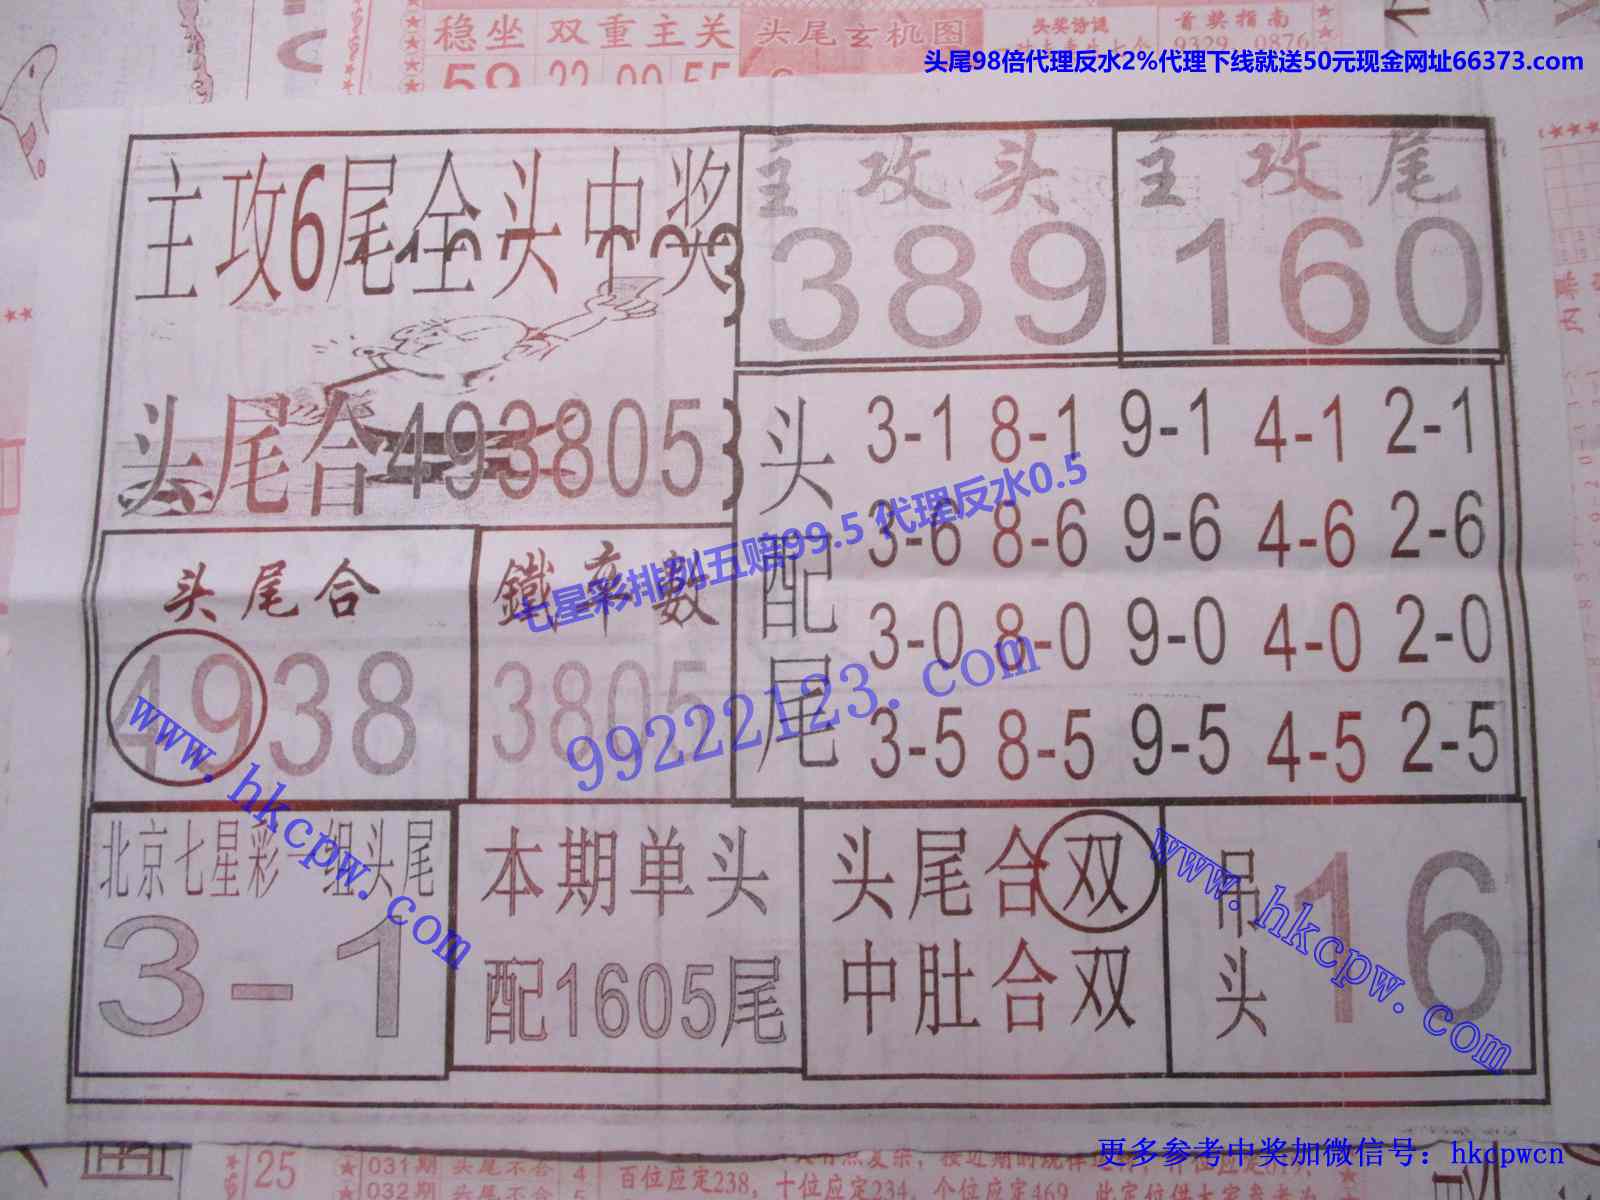 稳坐 双重主关 头尾玄机图 头奖诗谜 首奖指南
头尾98倍代理反水2%代理下线就送50元现金网址66373.com
主攻6尾全头中奖
主攻头
389
主攻尾
160
头尾合493805
头配尾
3-1 8-1 9-1 4-1 2-1
3-6 8-6 9-6 4-6 2-6
3-0 8-0 9-0 4-0 2-0
3-5 8-5 9-5 4-5 2-5
七星彩排列五赔99.5 代理反水0.5
头尾合
4938
鐵率數
3805
99222123.com
www.hkcpw.com
北京七星彩一组头尾
3-1
本期单头
配1605尾
头尾合双
中肚合双
吊头
16
www.hkcpw.com
更多参考中奖加微信号：hkcpwcn
25 031期 头尾不合 4
032期 头尾不合 5
百位应定238，十位应定234，个位应定469，